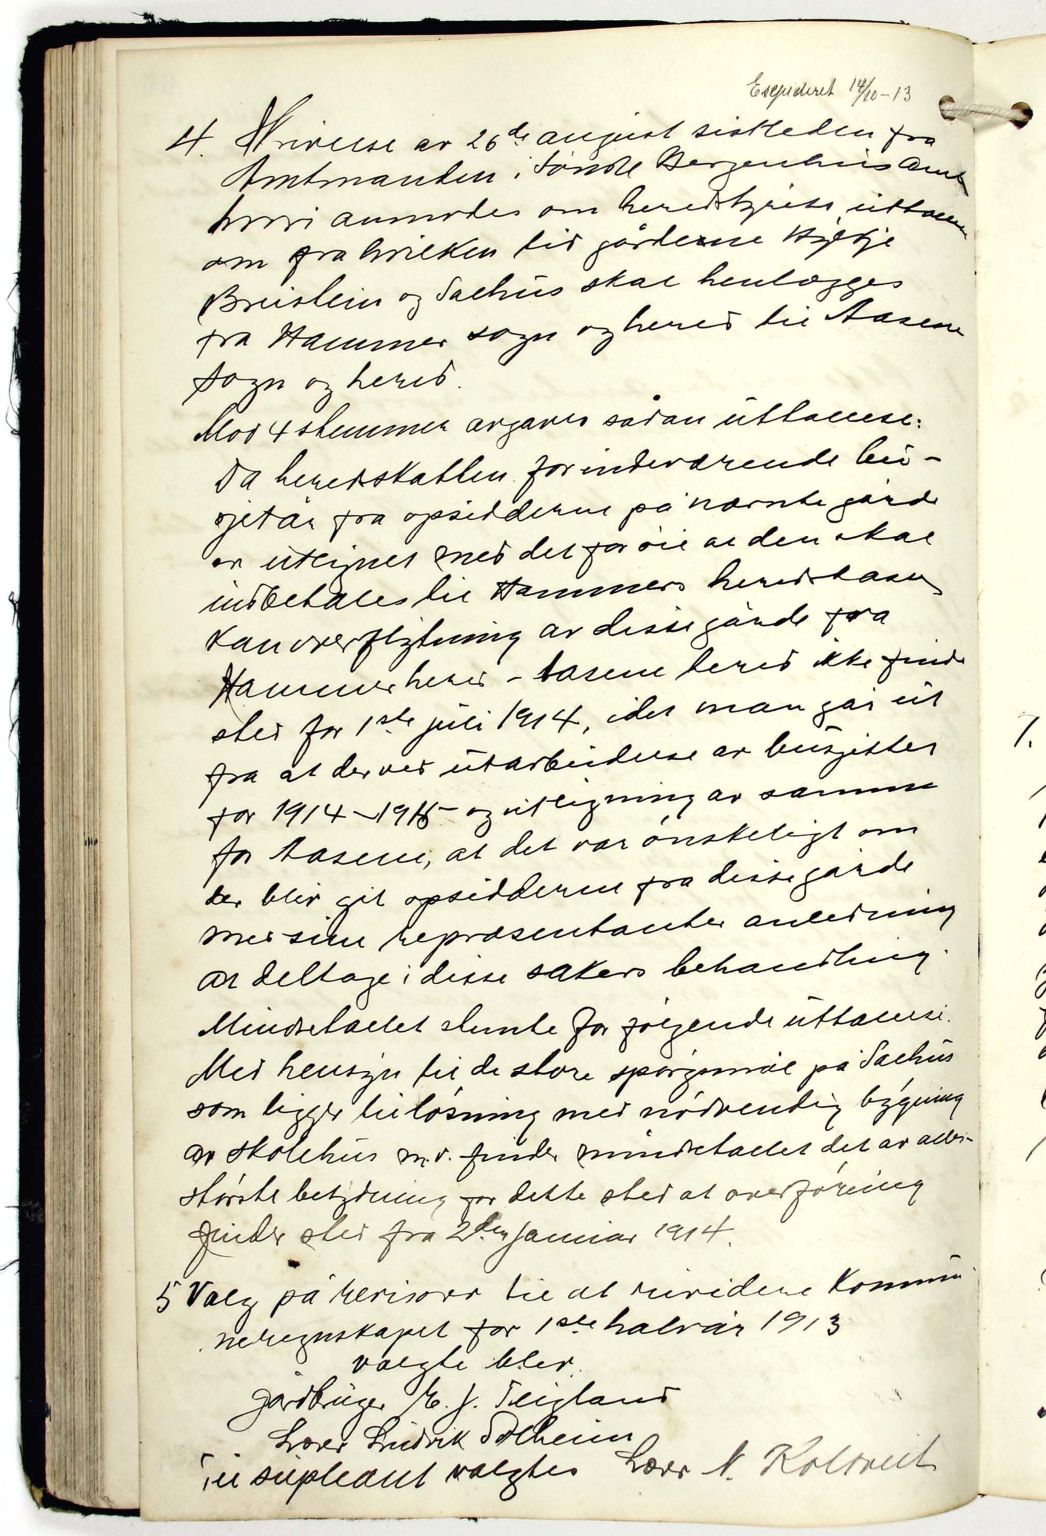 Expederet 14/10-13
4. Skrivelse av 26de august sistleden fra
Amtmanden i Söndre Bergenhus Amt
hvori anmodes om heredstyrets uttalelse
om fra hvilken tid gårdene Hylkje
Breistein og Salhus skal henlægges
fra Hammer sogn og hered til Aasene
sogn og hered.
Mod 4 stemmer avgaves sådan uttalelse:
Da heredskatten for indeværende bud-
sjetår fra opsidderne på nævnte gårde
er utlignet med det for öie at den skal
indbetales til Hammers heredskasse
kan overflytning av disse gårde fra
Hammer hered - Aasene hered ikke finde
sted för 1ste juli 1914, idet man går ut
fra at der ved utarbeidelse av budgettet
for 1914-1915 og utligning av samme
for Aasene, at det var önskeligt om
der blev git opsidderne fra disse gårde
med sine repræsentanter anledning
at deltage i disse sakers behandling.
Mindretallet stemte for fölgende uttalelse.
Med hensyn til de store spörgsmål på Salhus
som ligger til lösning med nödvendig bygning
av skolehus m.v. finder mindretallet det av aller-
störste betydning for dette sted at overföring
finder sted fra 2den januar 1914.
5 Valg på revisorer til at revidere Kommu-
neregnskapet for 1ste halvår 1913
valgte blev
gårdbruger E. J. Teigland
Lærer Ludvik Solheim
Til supleant valgtes Lærer N. Koltveit